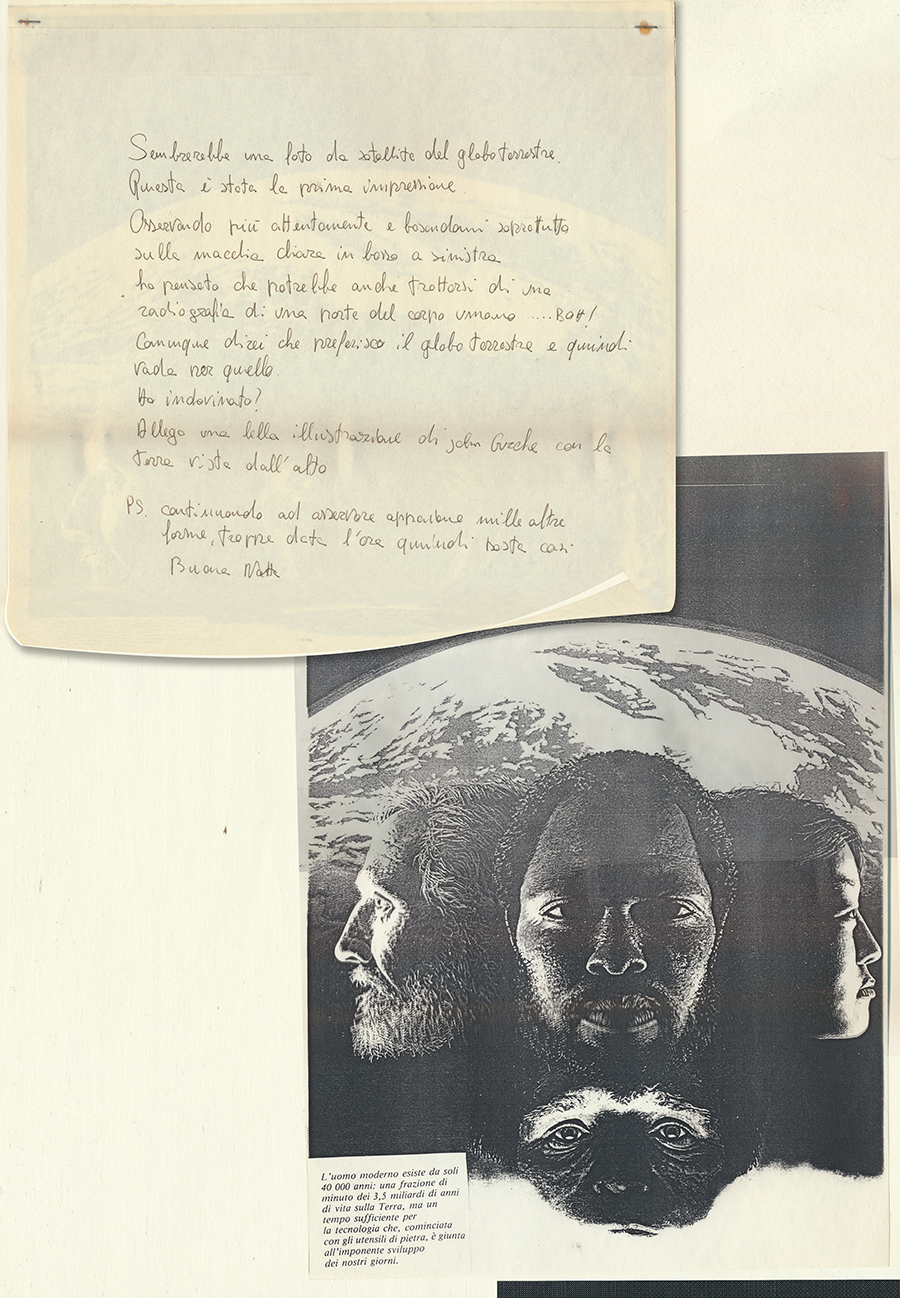 Sembrerebbe una foto da satellite del globo terrestre.
Questa è stata la prima impressione.
Osservando più attentamente e basandomi soprattutto
sulla macchia chiara in basso a sinistra
ho pensato che potrebbe anche trattarsi di una
radiografia di una parte del corpo umano .....BOH!
Comunque direi che preferisco il globo terrestre e quindi
vada per quello.
Ho indovinato?
Allego una bella illustrazione di John Gurche con la
terra vista dall'alto
PS. continuando ad osservare appaiono mille altre
forme, troppe data l'ora quindi basta così.
Buona Notte
L'uomo moderno esiste da soli
40 000 anni: una frazione di
minuto dei 3,5 miliardi di anni
di vita sulla Terra, ma un
tempo sufficiente per
la tecnologia che, cominciata
con gli utensili di pietra, è giunta
all'imponente sviluppo
dei nostri giorni.